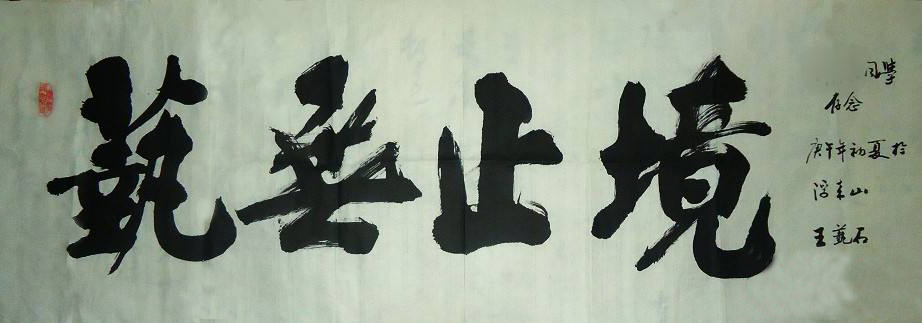 藝無止境
存念
庚午年初夏於
浮来山
王石